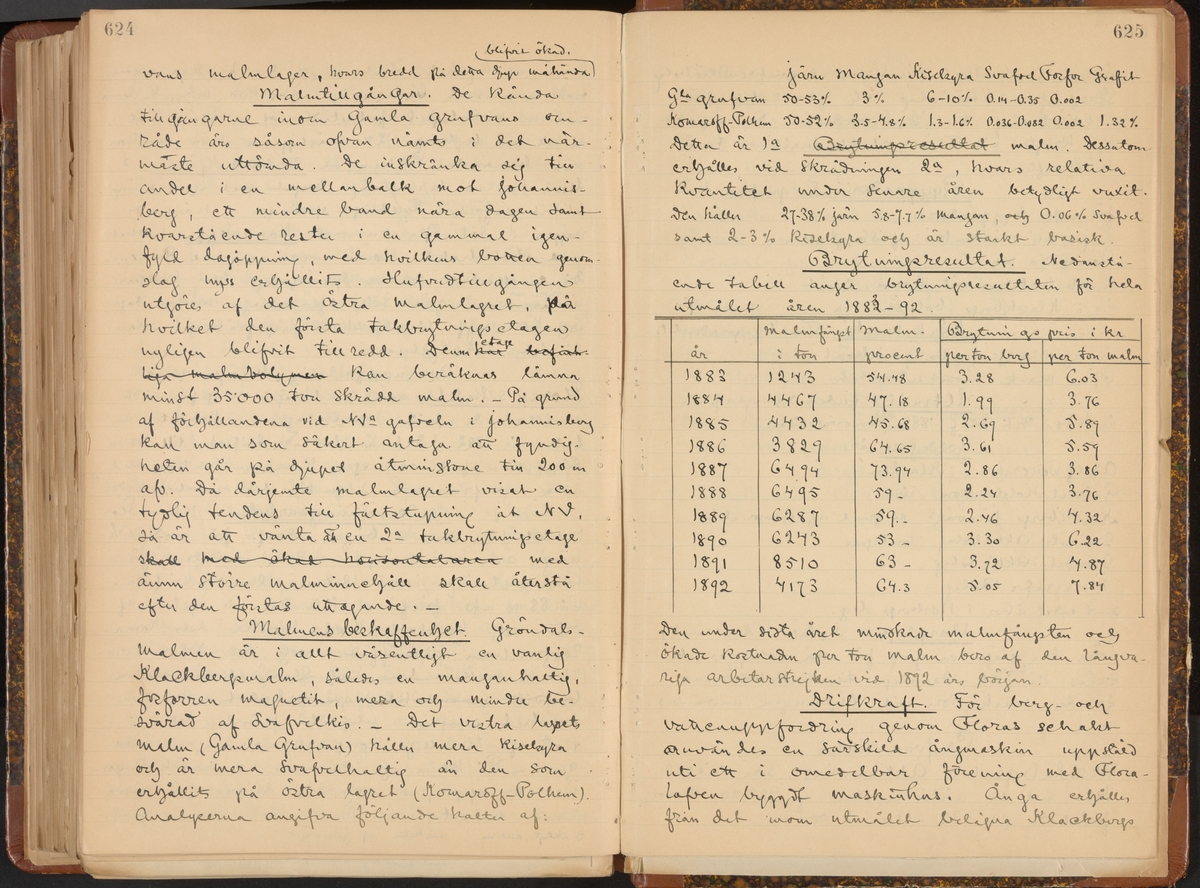 624
blifvit ökad.
vans malmlager, hvars bredd på detta djup måhända
Malmtillgångar. De kända
tillgångarne inom Gamla Grufvans om-
råde äro såsom ofvan nämts i det när-
maste uttömda. De inskränka sig till
andel i en mellanbalk mot Johannis-
berg, ett mindre band nära dagen samt
kvarstående rester i en gammal igen-
fyld dagöppning, med hvilkens botten genom-
slag nyss erhållits. Hufvudtillgången
utgöres af det östra malmlagret, på
hvilket den första takbrytningsetagen
nyligen blifvit tillredd. Denna etage
malmvolymen kan beräknas lämna
minst 35'000 ton skrädd malm. – På grund
af förhållandena vid NVa gafveln i Johannisberg
kan man som säkert antaga att fyndig-
heten går på djupet åtminstone till 200 m
afv. Då därjemte malmlagret visat en
tydlig tendens till fältstupning åt NV,
så är att vänta att en 2a takbrytningsetage
skall med ökad horisontalarea med
ännu större malminnehåll skall återstå
efter den förstas uttagande. –
Malmens beskaffenhet. Gröndals-
malmen är i allt väsentligt en vanlig
Klackbergsmalm, således en manganhaltig,
fosforren magnetit, mera och mindre be-
svärad af svafvelkis. – Det vestra lagrets
malm (Gamla Grufvan) håller mera kiselsyra
och är mera svafvelhaltig än den som
erhållits på östra lagret (Komaroff-Polhem).
Analyserna angifva följande halter af:
625
Järn Mangan Kiselsyra Svafvel Fosfor Grafit
Gla grufvan 50-53% 3% 6-10% 0.14-0.35 0.002
Komaroff-Polhem 50-52% 3.5-4.8% 1.3-1.6% 0.036-0.082 0.002 1.32%
Detta är 1a Brytningsresultat malm. Dessutom
erhålles vid skrädningen 2a, hvars relativa
kvantitet under senare åren betydligt vuxit.
Den håller 27-38% järn 5.8-7.7% mangan, och 0.06% svafvel
samt 2-3% kiselsyra och är starkt basisk.
Brytningsresultat. Nedanstå-
ende tabell anger brytningsresultaten för hela
utmålet åren 1883-92.
malmfångst Malm- Brytningspris i kr
år i ton procent per ton berg per ton malm
1883 1243 54.48 3.28 6.03
1884 4467 47.18 1.99 3.76
1885 4432 45.68 2.69 5.89
1886 3829 64.65 3.61 5.59
1887 6494 73.94 2.86 3.86
1888 6495 59- 2.24 3.76
1889 6287 59.- 2.46 4.32
1890 6243 53- 3.30 6.22
1891 8510 63- 3.72 4.87
1892 4173 64.3 5.05 7.84
Den under sista året minskade malmfångsten och
ökade kostnaden per ton malm bero af den långva-
riga arbetarstrejken vid 1892 års början.
Drifkraft. För berg- och
vattenuppfordring genom Floras schakt
användes en särskild ångmaskin uppstäld
uti ett i omedelbar förening med Flora-
lafven byggdt maskinhus. Ånga erhålles
från det inom utmålet belägna Klackbergs